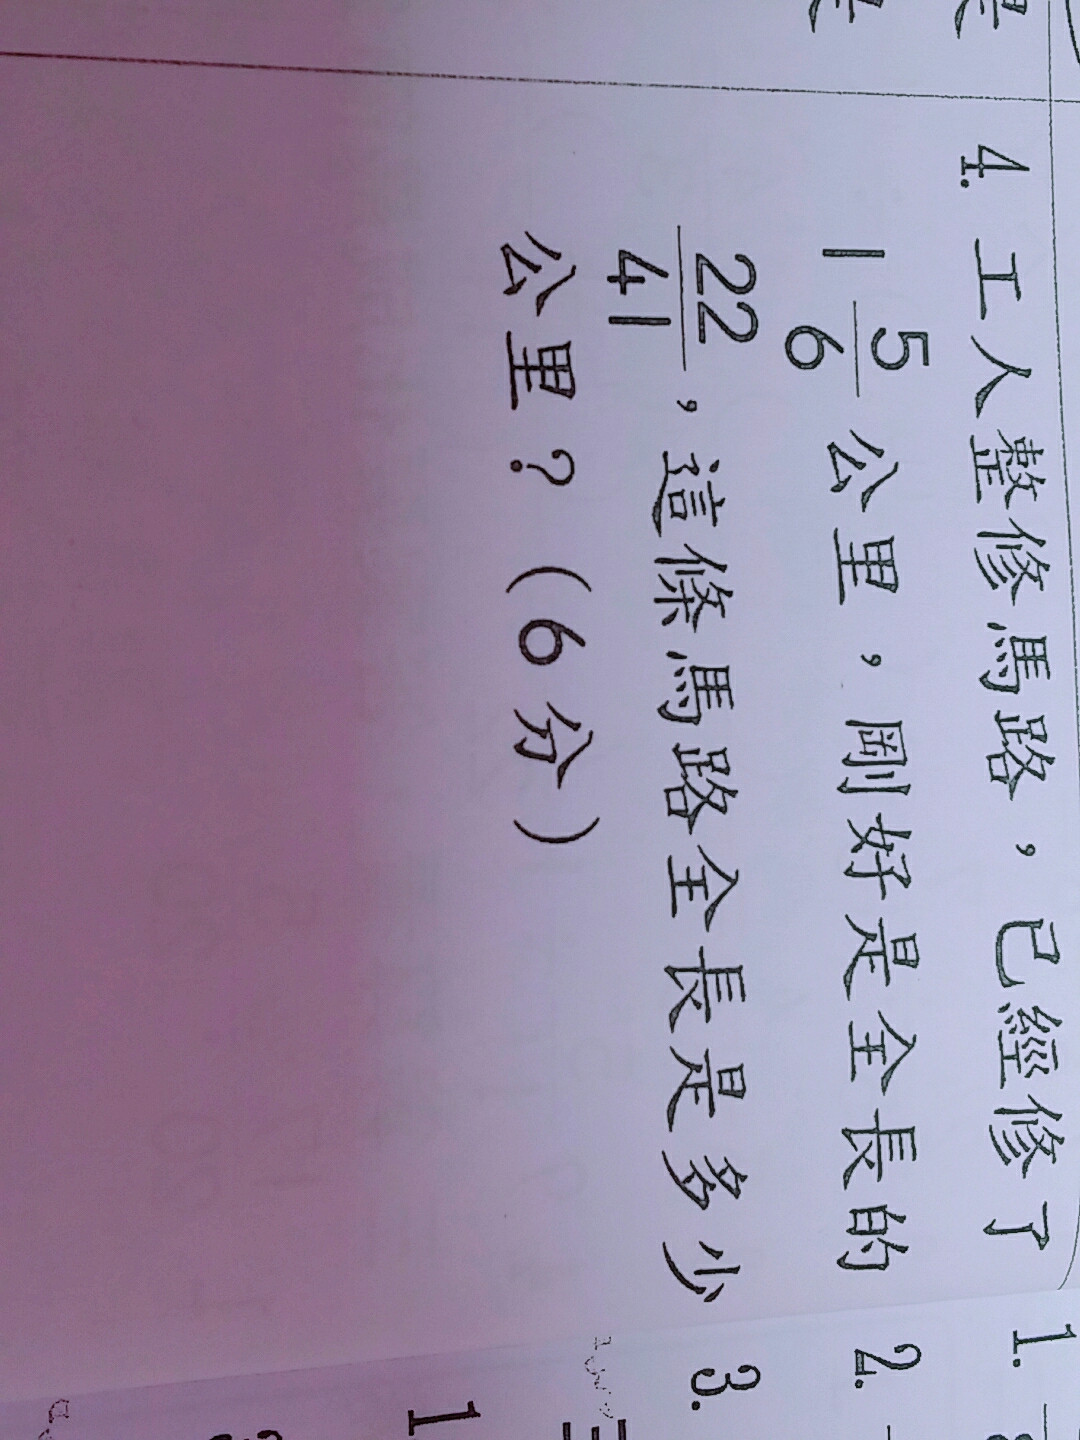 4. 工人整修馬路，已經修了
1 5/6 公里，剛好是全長的
22/41，這條馬路全長是多少
公里？（6分）
1.
2.
3.
1